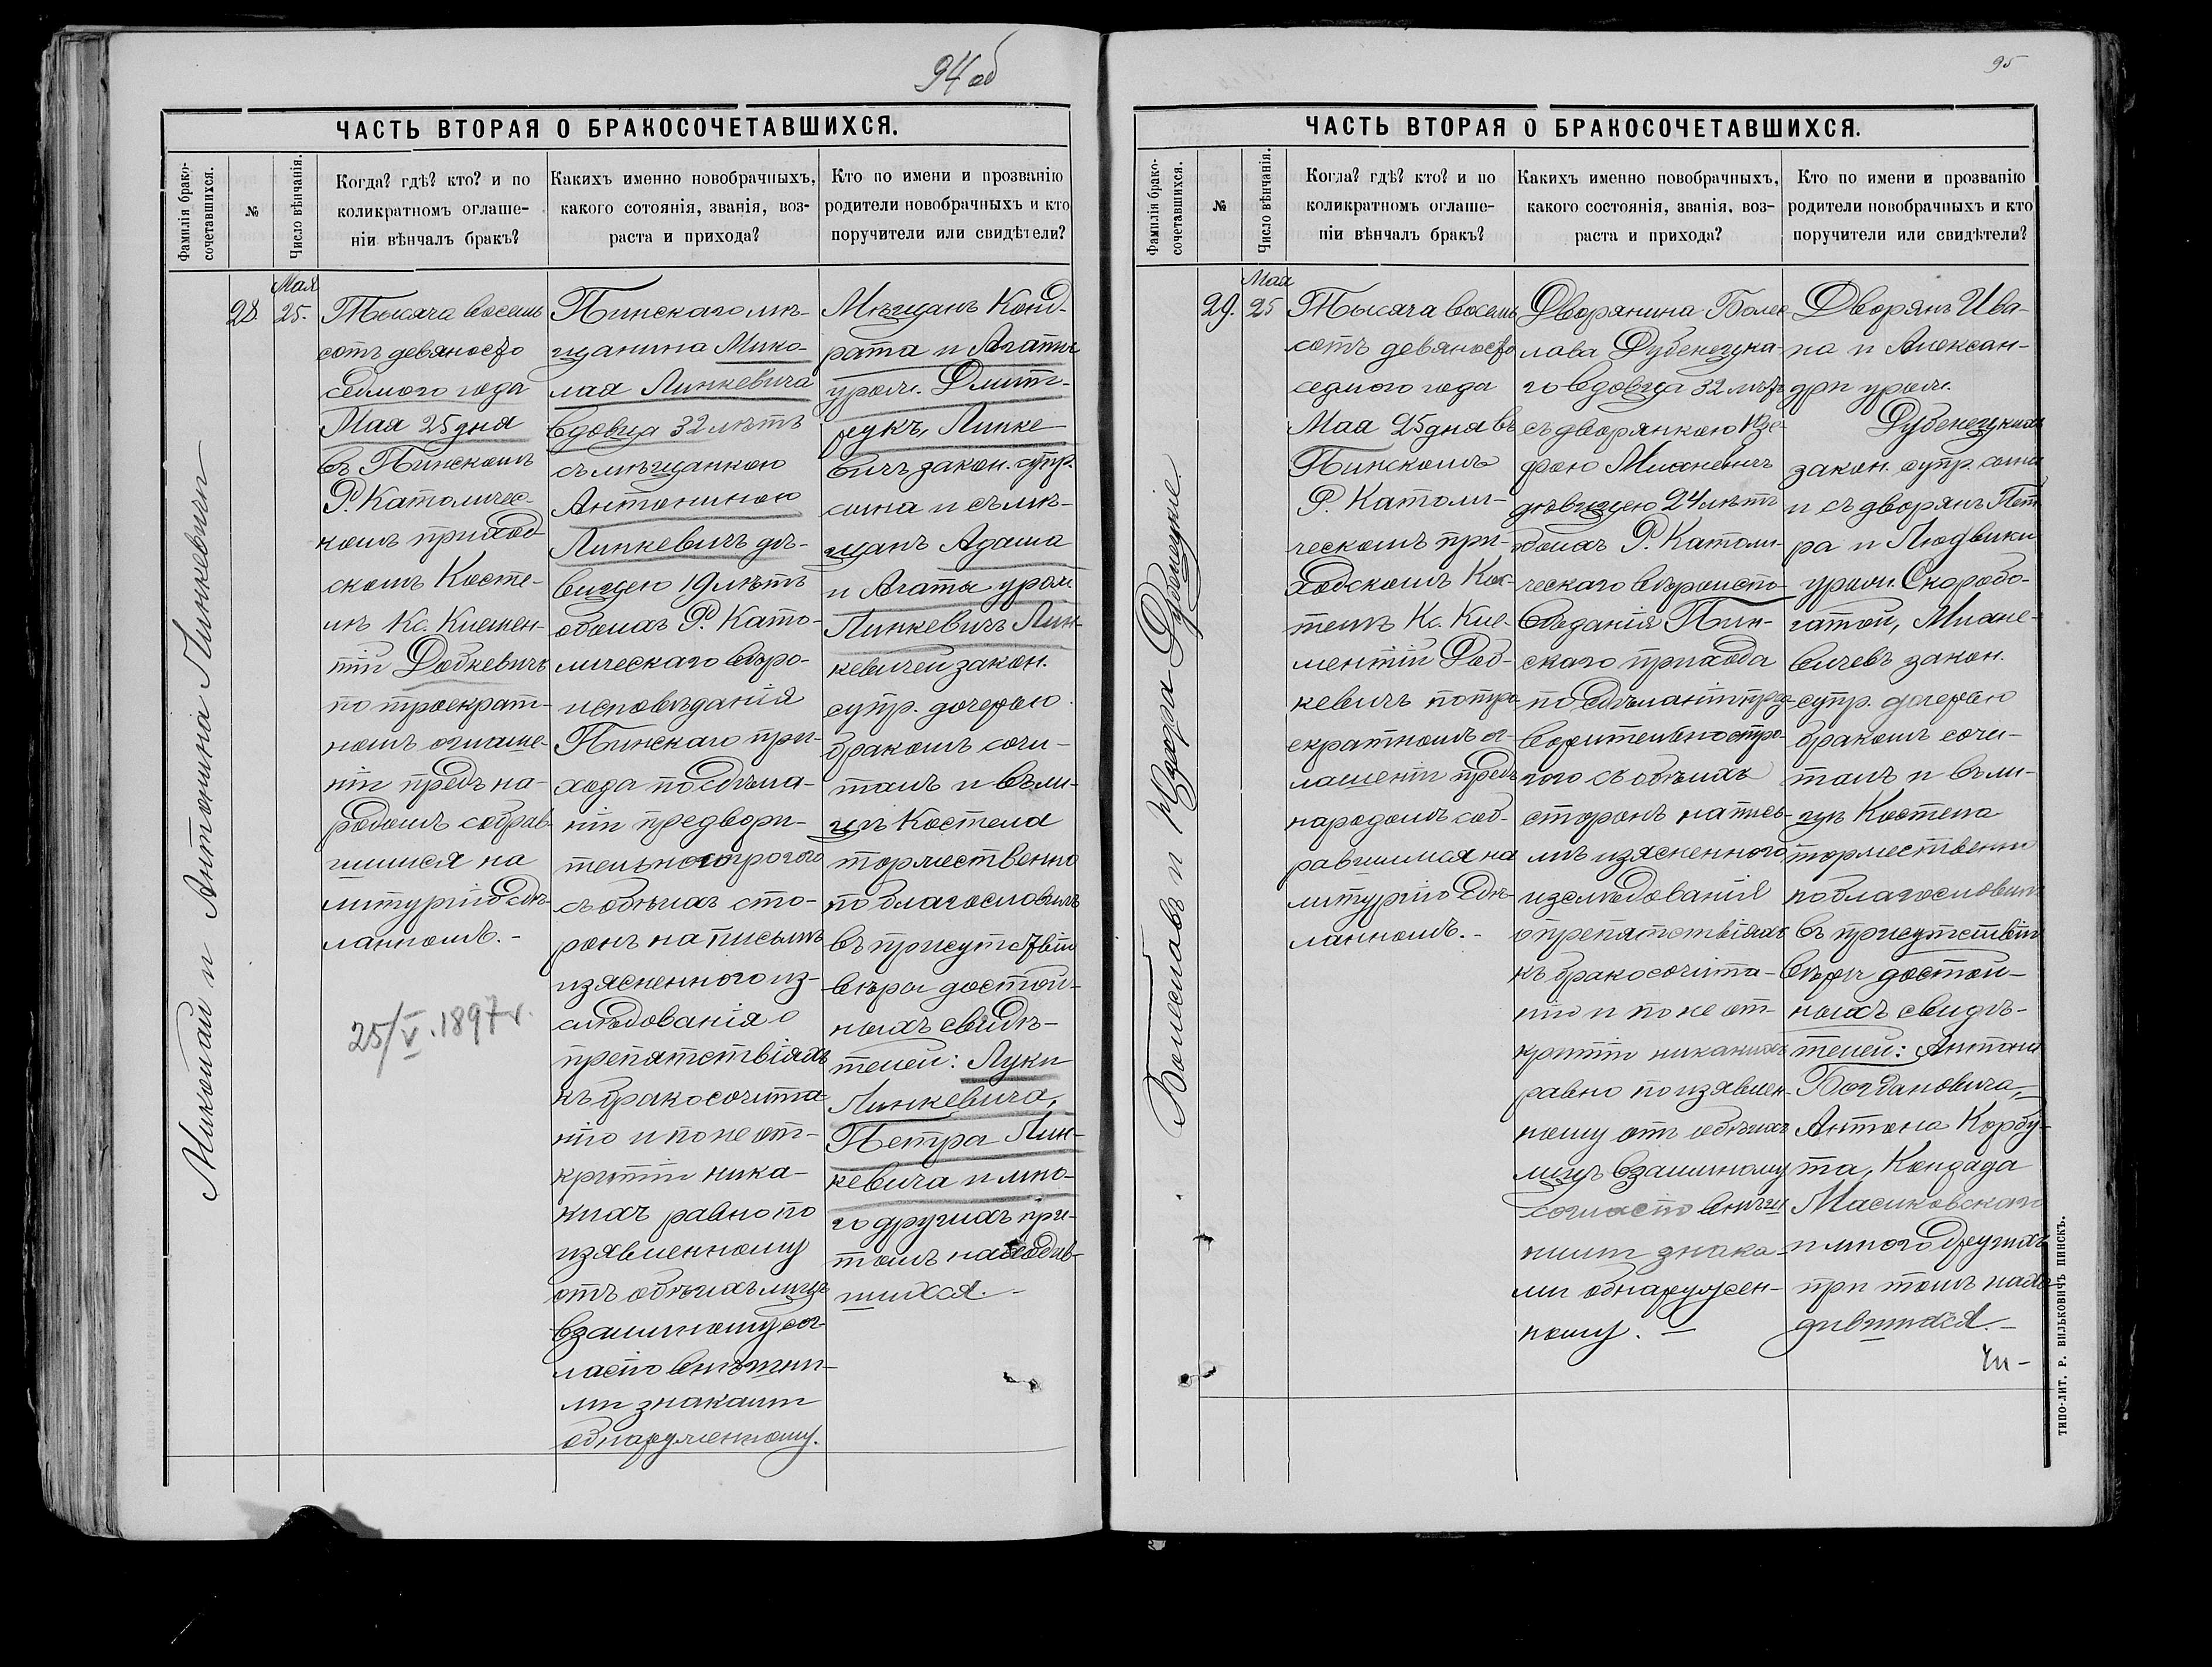 94 об
ЧАСТЬ ВТОРАЯ О БРАКОСОЧЕТАВШИХСЯ.
Фамилія брако-
сочетавшихся.
№
Число вѣнчанія.
Когда? гдѣ? кто? и по
коликратномъ оглаше-
ніи вѣнчалъ бракъ?
Какихъ именно новобрачныхъ,
какого сотоянія, званія, воз-
раста и прихода?
Кто по имени и прозванію
родители новобрачныхъ и кто
поручители или свидѣтели?
Николай и Антонина Линкевичи
28.
Мая
25.
Тысяча восемь
сотъ девяносто
седмого года
Мая 25 дня
въ Пинскомъ
Р. Католичес-
комъ приход-
скомъ Косте-
лѣ Кс. Климен-
тій Довкевичъ
по троекрат-
номъ оглаше-
ніи предъ на-
родомъ собрав-
шимся на
литургію сдѣ-
ланномъ. -
25/V.1897 г.
Пинскаго мѣ-
щанина Нико-
лая Линкевича
вдовца 32 лѣтъ
съ мѣщанкою
Антониною
Линкевичъ дѣ-
вицею 19 лѣтъ
обоихъ Р. Като-
лическаго вѣро-
исповѣданія
Пинскаго при-
хода по сдѣла-
ніи предвори-
тельно строгого
съ обѣихъ сто-
ронъ на письмѣ
изясненного из-
слѣдованія о
препятствіяхъ
къ бракосочита-
нію и по не от-
крытіи ника-
кихъ равно по
изявленному
отъ обѣихъ лицъ
взаимному сог-
ласію внѣшни-
ми знаками
обнаруженному.
Мѣщанъ Конд-
рата и Агаты
урож. Дмит-
рукъ, Линке-
вичъ закон. супр.
сына и съ мѣ-
щанъ Адама
и Агаты урож
Линкевичъ Лин-
кевичей закон.
супр. дочерью
бракомъ сочи-
талъ и въ ли-
цѣ Костела
торжественно
поблагословилъ
въ присутствіи
вѣры достой-
ныхъ свидѣ-
телей: Луки
Линкевича,
Петра Лин-
кевича и мно-
го другихъ при
томъ находив-
шихся. -
95
ЧАСТЬ ВТОРАЯ О БРАКОСОЧЕТАВШИХСЯ.
Фамилія брако-
сочетавшихся.
№
Число вѣнчанія.
Когда? гдѣ? кто? и по
коликратномъ оглаше-
ніи вѣнчалъ бракъ?
Какихъ именно новобрачныхъ,
какого состоянія, званія, воз-
раста и прихода?
Кто по имени и прозванію
родители новобрачныхъ и кто
поручители или свидѣтели?
Болеславъ и Дубенецкіе
29.
Мая
25
Тысяча восемь
сотъ девяносто
седмого года
Мая 25 дня въ
Пинскомъ
Р. Католи-
ческомъ при-
ходскомъ Кос-
телѣ Кс. Кли-
ментій Дов-
кевичъ по тро-
екратномъ ог-
лашеніи предъ
народомъ соб-
равшимся на
литургію сдѣ-
ланномъ. -
Дворянина Болес-
лава Дубенецка-
го вдовца 32 лѣтъ
съ дворянкою Изо-
рою Миляневичъ
дѣвицею 24 лѣтъ
обоихъ Р. Католи-
ческаго вѣроиспо-
вѣданія Пин-
скаго прихода
по сдѣланіи пред-
ворительно стро-
гого съ обѣихъ
сторонъ на пись-
мѣ изясненного
изслѣдованія
о препятствіяхъ
къ бракосочита-
нію и по не от-
крытіи никакихъ
равно по изявлен-
ному отъ обѣихъ
лицъ взаимному
согласію внѣш-
ними знака-
ми обнаружен-
ному. -
Дворянъ Ива-
на и Алексан-
дры урож.
Дубенецкихъ
закон. супр. сына
и съ дворянъ Пет-
ра и Людвики
урож. Скоробо-
гатой, Миляне-
вичевъ закон.
супр. дочерью
бракомъ сочи-
талъ и въ ли-
цѣ Костела
торжественно
поблагословилъ
въ присутствіи
вѣры достой-
ныхъ свидѣ-
телей: Антона
Богдановича,
Антона Корбу-
та,
Масиковскаго
и много другихъ
при томъ нахо-
дившихся. -
ТИПО-ЛИТ. Р. ВИЛЬКОВИЧЪ ПИНСКЪ.